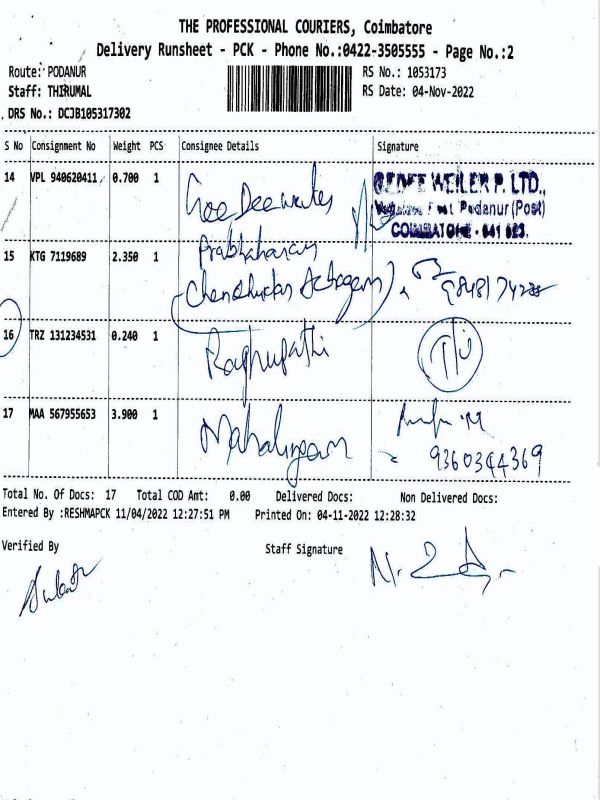 THE PROFESSIONAL COURIERS, Coimbatore
Delivery Runsheet - PCK - Phone No.:0422-3505555 - Page No.:2
Route: PODANUR
RS No.: 1053173
Staff: THIRUMAL
RS Date: 04-Nov-2022
DRS No.: DCJB105317302
S No Consignment No Weight PCS Consignee Details Signature
14 VPL 940620411 0.700 1
WEILER P. LTD.,
Podanur (Post)
COIMBATORE - 641 023.
15 KTG 7119689 2.350 1 Prabhakaran
16 TRZ 131234531 0.240 1 Raghupathi
17 MAA 567955653 3.900 1 Mahalingam
9360344369
Total No. Of Docs: 17 Total COD Amt: 0.00 Delivered Docs: Non Delivered Docs:
Entered By :RESHMAPCK 11/04/2022 12:27:51 PM Printed On: 04-11-2022 12:28:32
Verified By Staff Signature